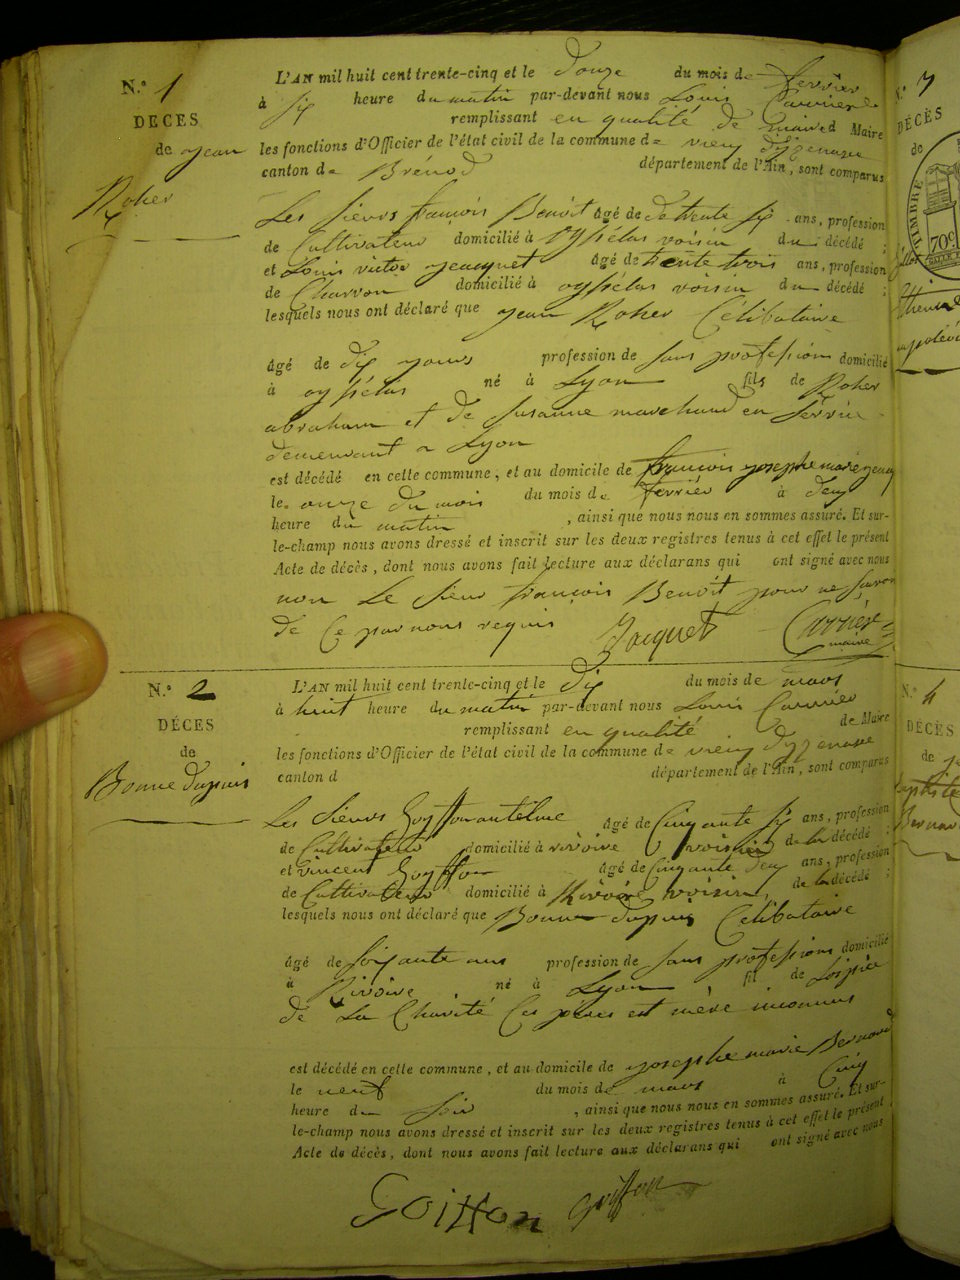 N.° 1
DECES
de jean
Roher
L'AN mil huit cent trente-cinq et le douze du mois de fevrier
à six heure du matin par-devant nous Louis Carrier
remplissant en qualité de maire d Maire
les fonctions d'Officier de l'état civil de la commune de vieu d'izenave
canton de Brénod département de l'Ain, sont comparus
Les sieurs francois Benoit âgé de trente six ans, profession
de Cultivateur domicilié à oysselas voisin du décédé ;
et Louis victor jacquet âgé de trente trois ans, profession
de Charron domicilié à oysselas voisin du décédé ;
lesquels nous ont déclaré que jean Roher Célibataire
âgé de dix jours profession de sans profession domicilié
à oysselas né à Lyon fils de Roher
abraham et de susanne marchand en
demeurant a Lyon
est décédé en cette commune, et au domicile de francois josephe marie
le onze du mois du mois de fevrier à deux
heure du matin , ainsi que nous nous en sommes assuré. Et sur-
le-champ nous avons dressé et inscrit sur les deux registres tenus à cet effet le présent
Acte de décès, dont nous avons fait lecture aux déclarans qui ont signé avec nous
non Le sieur francois Benoit pour ne savoir
de Ce par nous requis Jacquet Carrier
maire
N.° 2
DÉCES
de
Bonne dupuis
L'AN mil huit cent trente-cinq et le dix du mois de mars
à huit heure du matin par-devant nous Louis Carrier
remplissant en qualité de Maire
les fonctions d'Officier de l'état civil de la commune de vieu d'izenave
canton d département de l'Ain, sont comparus
Les sieurs Goyffon antelme âgé de Cinquante six ans, profession
de Cultivateur domicilié à rivoire voisin de la décédé ;
et vincent Goyffon âgé de Cinquante deux ans, profession
de Cultivateur domicilié à Rivoire voisin, de la décédé ;
lesquels nous ont déclaré que Bonne dupuis Célibataire
âgé de soixante ans profession de sans profession domicilié
à Rivoire né à Lyon fil de
de La Charité Ces péres est mère inconnus
est décédé en cette commune, et au domicile de josephe marie Bernard
le neuf du mois de mars à Cinq
heure du soir , ainsi que nous nous en sommes assuré. Et sur-
le-champ nous avons dressé et inscrit sur les deux registres tenus à cet effet le présent
Acte de décès, dont nous avons fait lecture aux déclarans qui ont signé avec nous
Goiffon goiffon
DÉCÈS
de
TIMBRE
70c
N.° 4
DÉCÈS
de